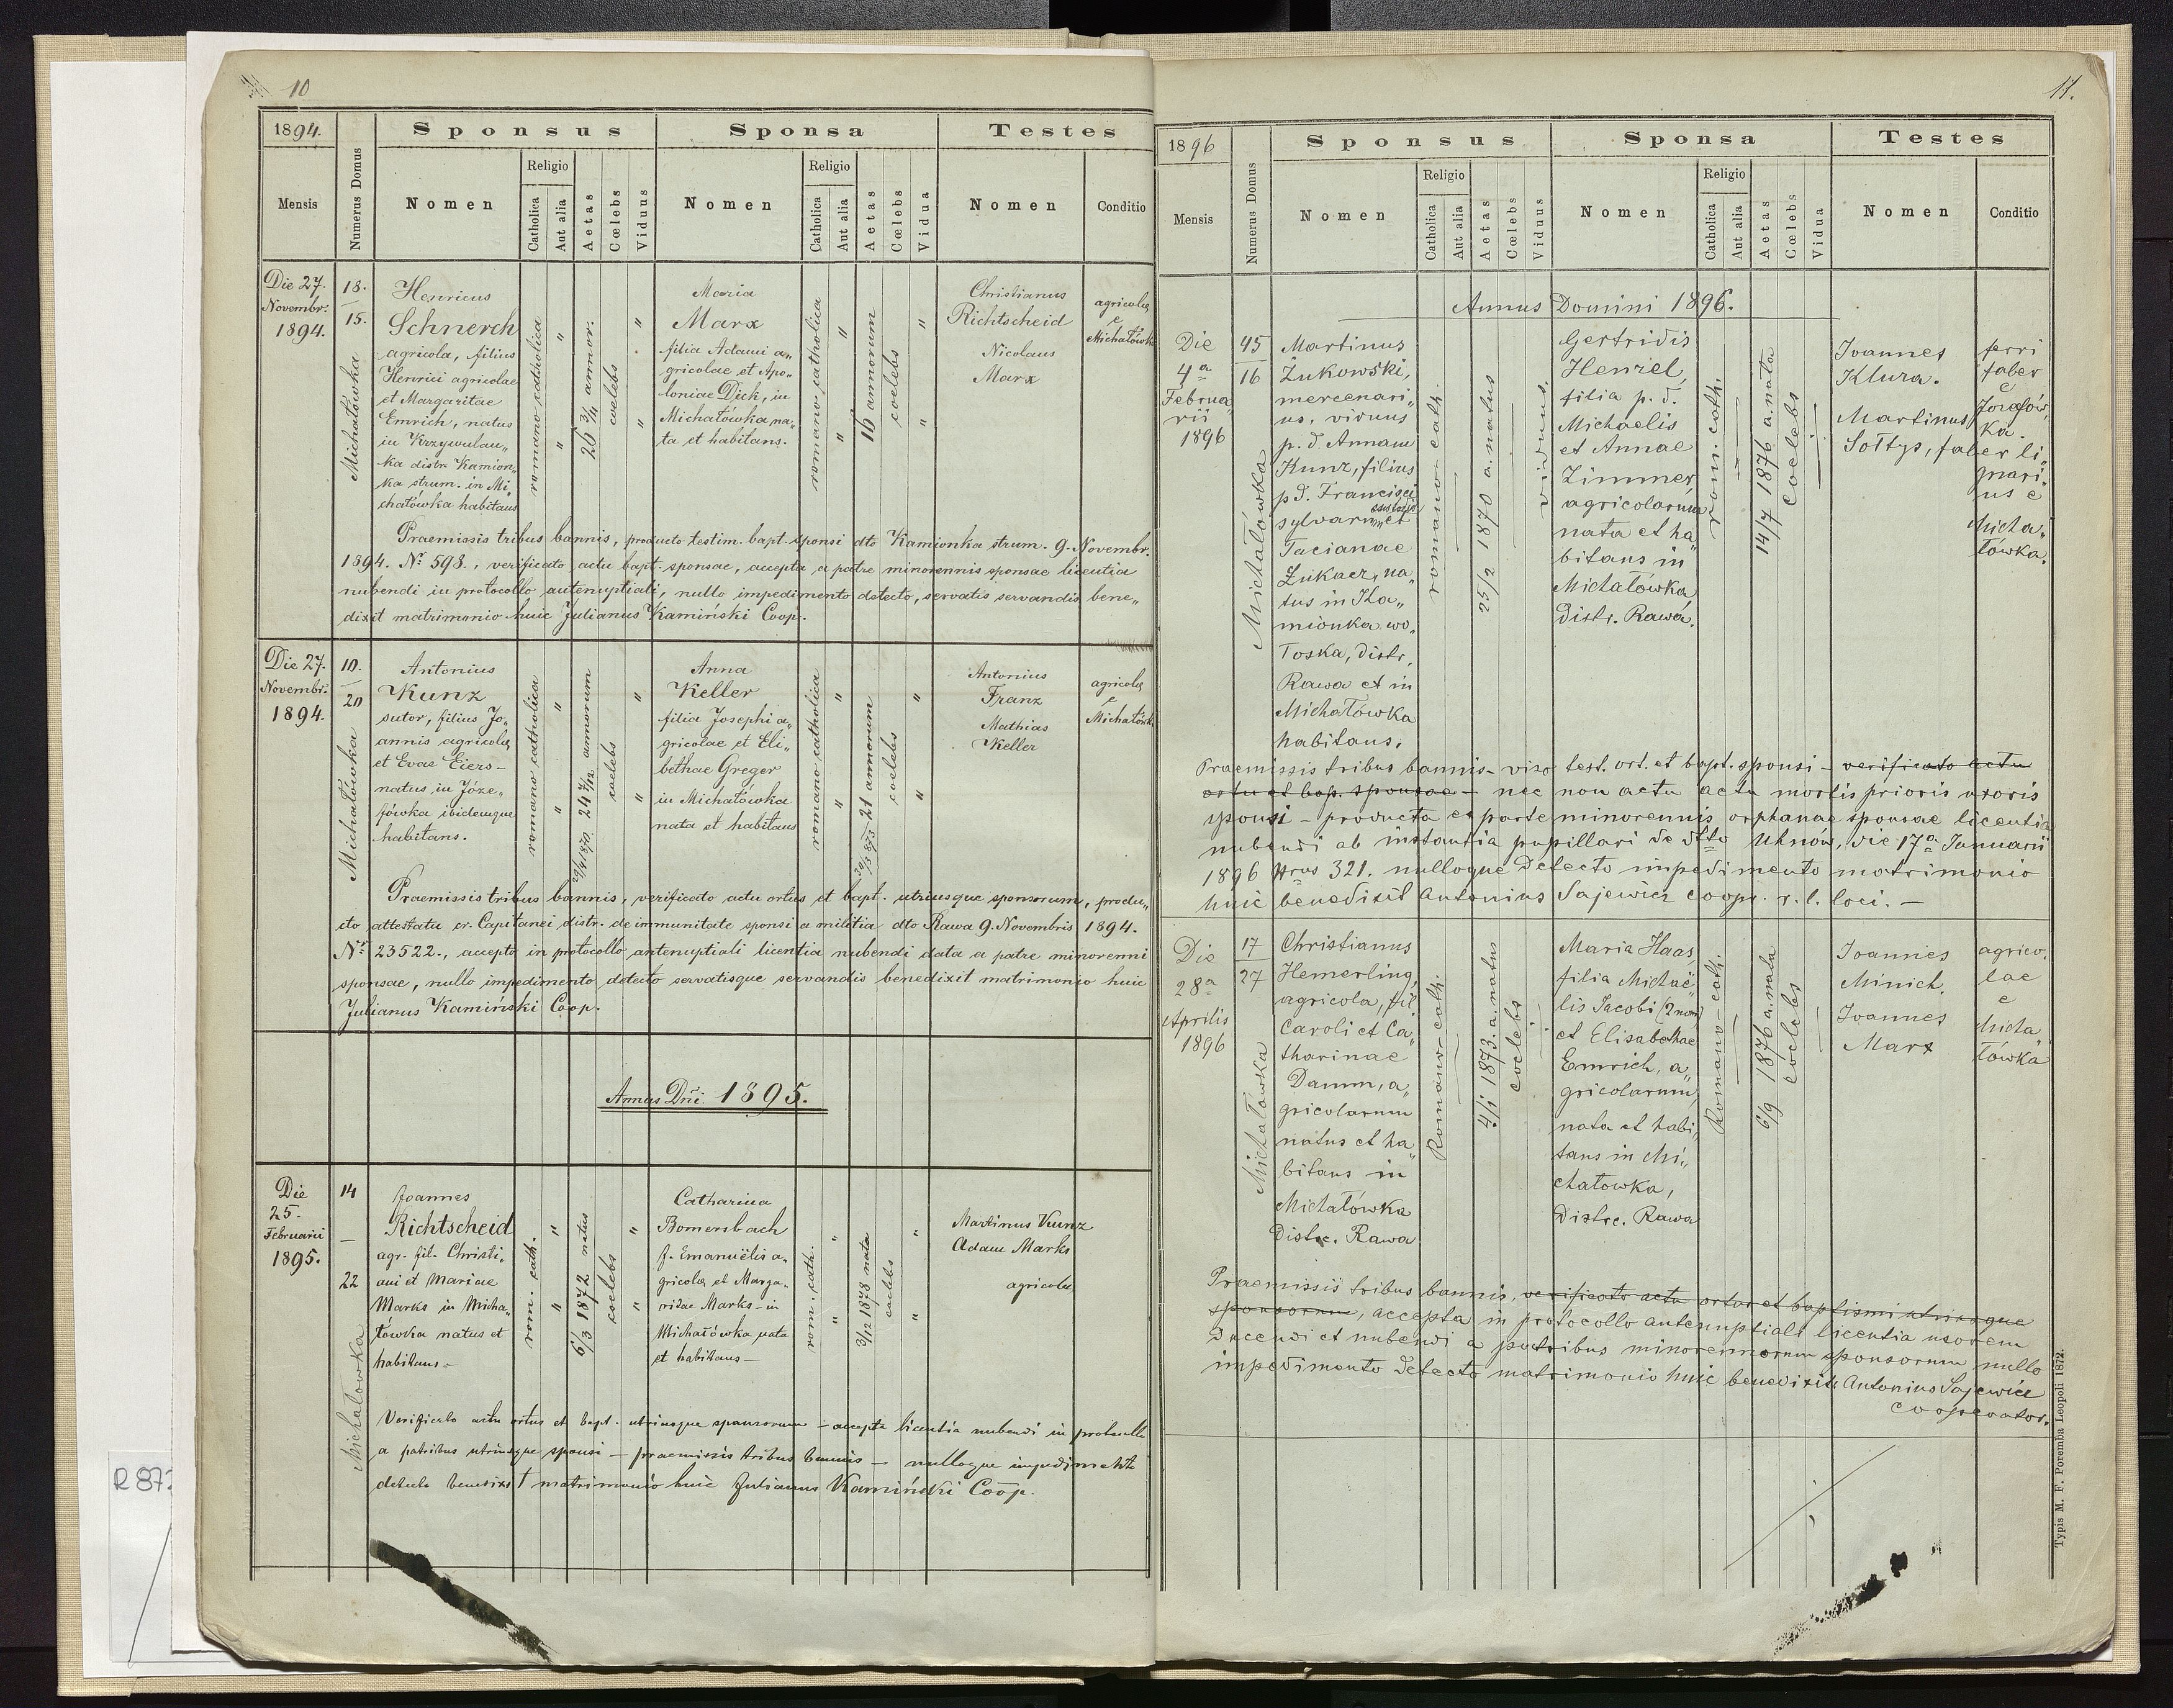 10
1894.
Sponsus
Sponsa
Testes
Mensis
Numerus Domus
Nomen
Religio
Catholica
Aut alia
Aetas
Cœlebs
Viduus
Nomen
Religio
Catholica
Aut alia
Aetas
Cœlebs
Vidua
Nomen
Conditio
Die 27.
Novembr.
1894.
18.
15.
Michałówka
Henricus
Schnerch
agricola, filius
Henrici agricolae
et Margaritae
Emrich, natus
in Krzywulan„
ka distr. Kamion„
ka strum. in Mi„
chałówka habitans
romano catholica
"
"
26 3/4 annor.
coelebs
"
"
Maria
Marx
filia Adami a„
gricolae et Apo„
loniae Dick, in
Michałówka na„
ta et habitans.
romano catholica
"
"
16 annorum
coelebs
"
"
Christianus
Richtscheid
Nicolaus
Marx
agricolae
e
Michałówka
Praemissis tribus bannis, producto testim. bapt. sponsi dto Kamionka strum. 9. Novembr.
1894. No 598., verificato actu bapt. sponsae, accepta a patre minorennis sponsae licentia
nubendi in protocollo antenuptiali, nullo impedimento detecto, servatis servandis bene„
dixit matrimonio huic Julianus Kamiński Coop.
Die 27.
Novembr.
1894.
10.
20
Michałówka
Antonius
Kunz
sutor, filius Jo„
annis agricolae
et Evae Eiers-
natus in Józe„
fówka ibidemque
habitans.
romano catholica
"
"
24 7/12 annorum
coelebs
"
"
Anna
Keller
filia Josephi a„
gricolae et Eli„
bethae Greger
in Michałówka
nata et habitans
romano catholica
"
"
21 annorum
coelebs
"
"
Antonius
Franz
Mathias
Keller
agricolae
e
Michałówk
Praemissis tribus bannis, verificato actu ortus et bapt. utriusque sponsorum, produ„
cto attestatu cr. Capitanei distr. de immunitate sponsi a militia dto Rawa 9. Novembris 1894.
Nr 23522., accepta in protocollo antenuptiali licentia nubendi data a patre minorenni
sponsae, nullo impedimento detecto servatisque servandis benedixit matrimonio huic
Julianus Kamiński Coop.
Annus Dni. 1895.
Die
25.
Februarii
1895.
14
22
Michałowka
Joannes
Richtscheid
agr. fil. Christi„
ani et Mariae
Marks in Micha„
łówka natus et
habitans-
rom. cath.
"
"
6/3 1872 natus
coelebs
"
"
Catharina
Bomersbach
f. Emanuëlis a„
gricolae et Marga„
ridae Marks - in
Michałówka nata
et habitans-
rom. cath.
"
"
3/12 1878 nata
coelebs
"
"
Martinus Kunz
Adam Marks
agricolae
Verificato actu ortus et bapt. utriusque sponsorum - accepta licentia nubendi in protocollo
a patribus utriusque sponsi - praemissis tribus bannis - nulloque impedimento
detecto benedixit matrimonio huic Julianus Kamiński Coop.
R 872
11.
1896
Sponsus
Sponsa
Testes
Mensis
Numerus Domus
Nomen
Religio
Catholica
Aut alia
Aetas
Cœlebs
Viduus
Nomen
Religio
Catholica
Aut alia
Aetas
Cœlebs
Vidua
Nomen
Conditio
Annus Domini 1896.
Die
4a
Februa„
rii
1896
45
16
Michałówka
Martinus
Żukowski,
mercenari„
us, viduus
p. d. Annam
Kunz, filius
p. d. Francisci
sylvarum custodis et
Tacianae
Łukacz, na„
tus in Ka„
mionka wo„
łoska, distr.
Rawa et in
Michałówka
habitans.
romano cath.
25/2 1870 a. natus
viduus.
Gertridis
Henzel,
filia p. d.
Michaelis
et Annae
Zimmer
agricolarum
nata et ha„
bitans in
Michałówka
distr. Rawa.
rom. cath.
14/7 1876 a. nata
Coelebs
Joannes
Klura.
Martinus
Sołtys, faber li„
ferri
faber
e
Józefów„
ka.
gnari„
us e
Micha„
łówka.
Praemissis tribus bannis - viso test. ort. et bapt. sponsi - verificato actu
ortus et bap. sponsae - nec non actu actu mortis prioris uxoris
sponsi - producta ex parte minorennis orphanae sponsae licentia
nubendi ab instantia pupillari de dtto Uhnów, die 17a Januarii
1896 Nrus 321. nulloque detecto impedimento matrimonio
huic benedixit Antonius Sajewicz coop. r. l. loci. -
Die
28a
Aprilis
1896
17
27
Michałówka
Christianus
Hemerling,
agricola, fil
Caroli et Ca„
tharinae
Damm, a„
gricolarum
natus et ha„
bitans in
Michałówka
Distr. Rawa
Romano-cath.
4/1 1873. a. natus
coelebs
Maria Haas,
filia Michaë„
lis Jacobi (2 nom)
et Elisabethae
Emrich, a„
gricolarum,
nata et habi„
tans in Mi„
chałowka,
Distr. Rawa
Romano-cath.
6/9 1876 a. nata
coelebs
Joannes
Minich.
Joannes
Marx
agrico„
lae
e
Micha„
łówka
Praemissis tribus bannis, verificato actu ortus et baptismi utriusque
sponsorum, accepta in protocollo antenuptiali licentia uxorem
ducendi et nubendi a patribus minorennorum sponsorum nullo
impedimento detecto matrimonio huic benedixit Antonius Sajewicz
cooperator.
Typis M. F. Poremba Leopoli 1872.